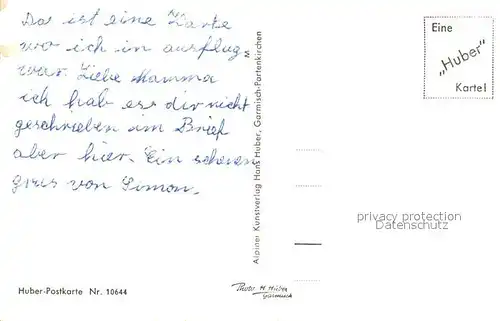 Da ist eine Karte
wo ich in ausflug
war. Liebe Mamma
ich hab es dir nicht
geschrieben im Brief
aber hier. Ein schenen
grus von Simon.
Huber-Postkarte Nr. 10644
Alpiner Kunstverlag Hans Huber, Garmisch-Partenkirchen
Photo H. Huber
Garmisch
Eine
„Huber"
Karte!
privacy protection
Datenschutz